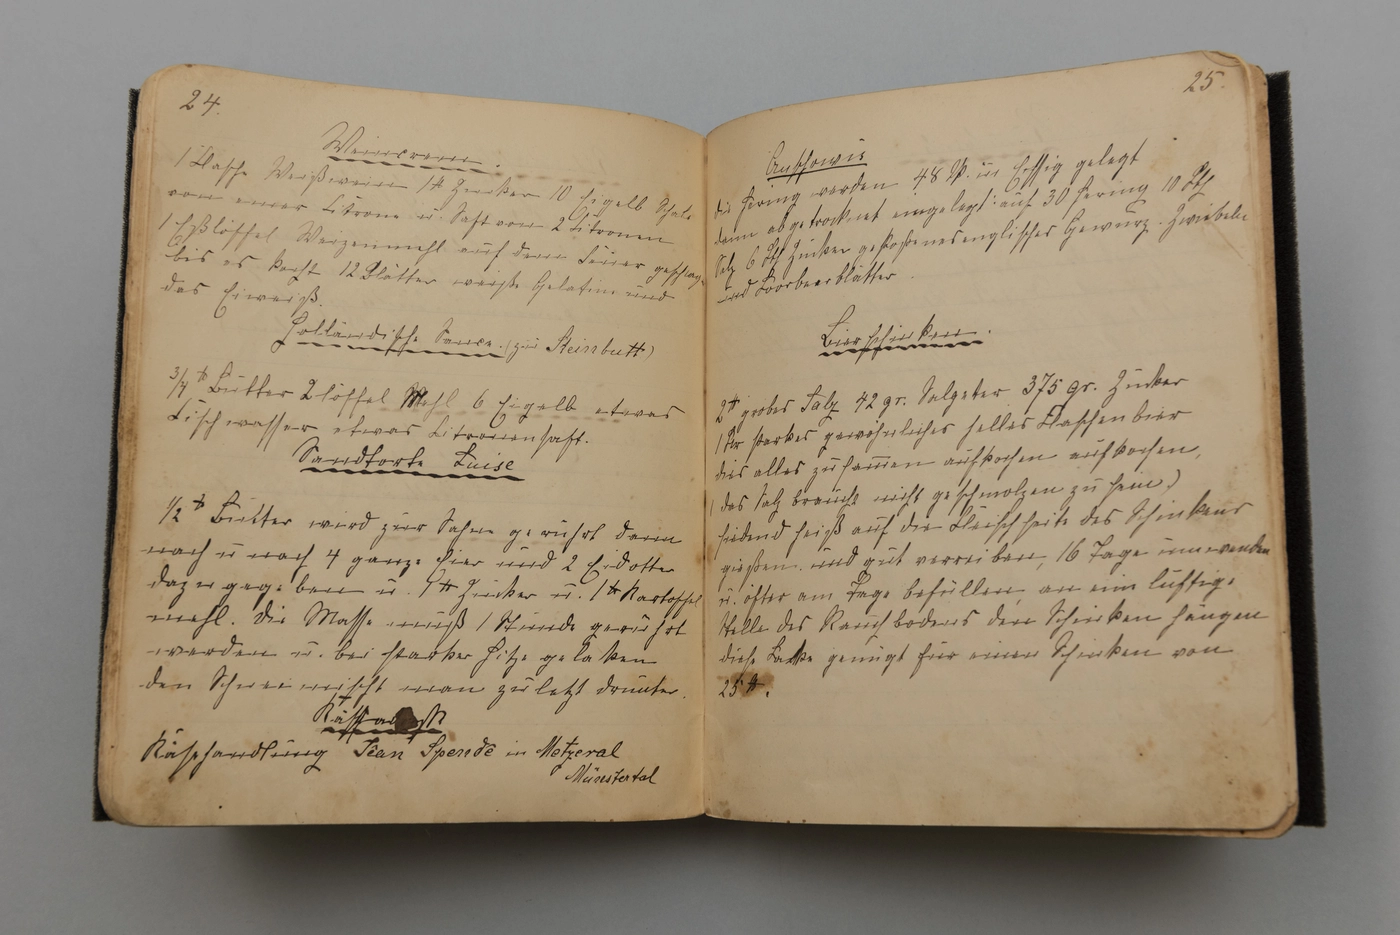 24.
Weincrem.
1 Flasche Weißwein 1 ℔ Zucker 10 Eigelb Schale
von einer Citrone u. Saft von 2 Citronen
1 Eßlöffel Weizenmehl auf dem Feuer geschlag.
bis es kocht 12 Blätter weiße Gelatine und
das Eiweiß.
Holländische Sauce. (zu Steinbutt)
3/4 ℔ Butter 2 Löffel Mehl 6 Eigelb etwas
Fischwasser etwas Citronensaft.
Sandtorte Luise
1/2 ℔ Butter wird zur Sahne gerührt dann
nach u nach 4 ganze Eier und 2 Eidotter
dazu gegeben u. 1 ℔ Zucker u. 1 ℔ Kartoffel
mehl. Die Masse muß 1 Stunde gerührt
werden u. bei starker Hitze gebacken
den Schnee mischt man zuletzt drunter.
Käsehandlung Jean Spende in Metzeral
Münstertal
25.
Anschowis
die Hering werden 48 St. in Essig gelegt
dann abgetrocknet eingelegt: auf 30 Hering 10 Lth
Salz 6 Lth Zucker gestoßenes englisches Gewürz. Zwiebeln
und Loorbeerblätter.
Bierschinken.
2 ℔ grobes Salz 42 gr. Salpeter 375 gr. Zucker
1 Ltr starkes gewöhnliches helles Flaschenbier
dies alles zusam̅en aufkochen aufkochen,
(das Salz braucht nicht geschmolzen zu sein)
siedend heiß auf die Fleischseite des Schinkens
gießen. und gut verreiben, 16 Tage umwenden
u. öfter am Tage befüllen, an eine luftige
Stelle des Rauchbodens den Schinken hängen
diese Lacke genügt für einen Schinken von
25 ℔.